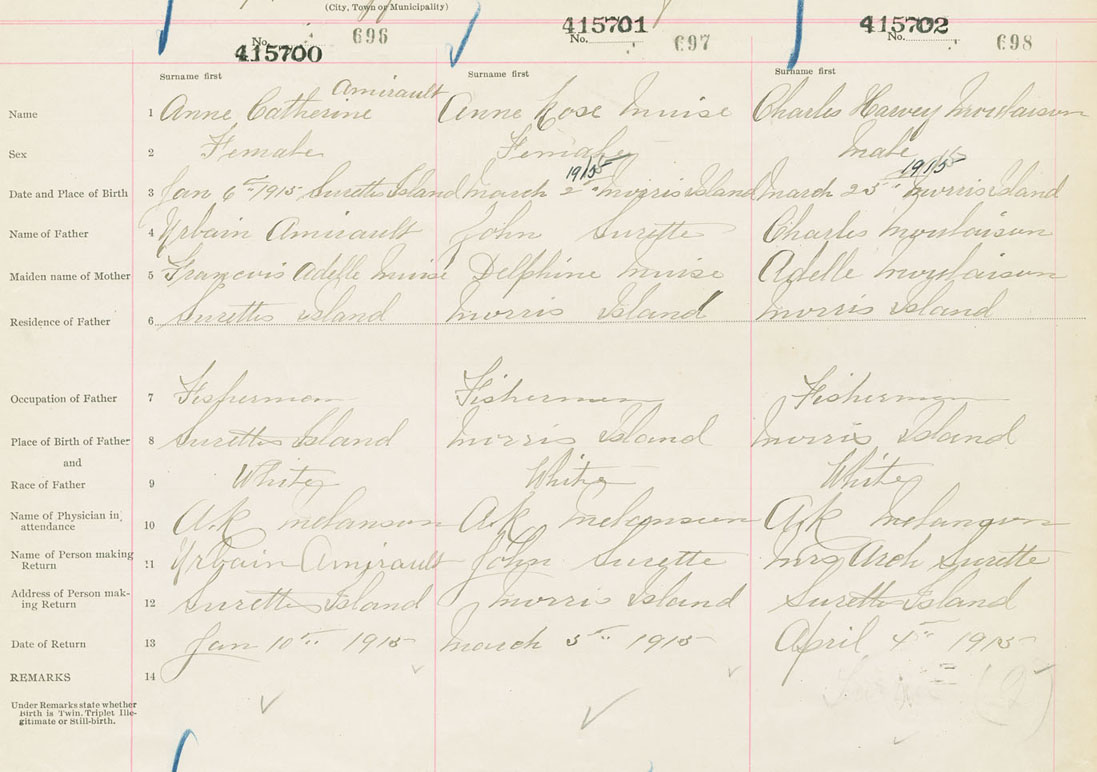 (City, Town or Municipality)
No. 415700 696
No. 415701 697
No. 415702 698
Surname first Surname first Surname first
Amirault
Name 1 Anne Catherine Anne Rose Muise Charles Harvey Moulaison
Sex 2 Female Female Male
1915 1915
Date and Place of Birth 3 Jan 6th 1915 Surettes Island March 2nd " Morris Island March 25th " Morris Island
Name of Father 4 Urbain Amirault John Surette Charles Moulaison
Maiden name of Mother 5 Francois Adelle Muise Delphine Muise Adelle Moulaison
Residence of Father 6 Surettes Island Morris Island Morris Island
Occupation of Father 7 Fisherman Fisherman Fisherman
Place of Birth of Father 8 Surettes Island Morris Island Morris Island
and
Race of Father 9 White White White
Name of Physician in attendance 10 A.K Melanson A.K Melanson A.K Melanson
Name of Person making Return 11 Urbain Amirault John Surette Mrs Arch Surette
Address of Person making Return 12 Surettes Island Morris Island Surettes Island
Date of Return 13 Jan 10th 1915 March 5th 1915 April 4th 1915
REMARKS 14
Under Remarks state whether
Birth is Twin. Triplet Ille-
gitimate or Still-birth.